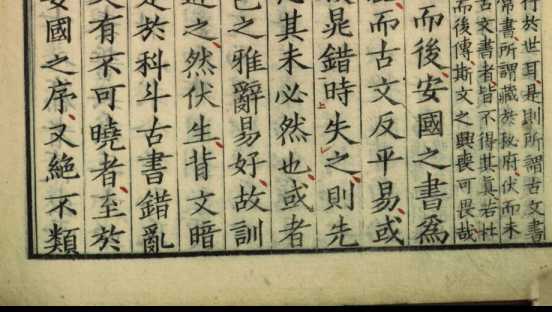 行於世耳是則所謂古文書
常書所謂藏於秘府伏而未
古文書者皆不得其真若杜
而後傳斯文之興喪可畏哉
而後安國之書為
而古文反平易或
晁錯時失之則先
其未必然也或者
之雅辭易好故訓
之然伏生背文暗
於科斗古書錯亂
有不可曉者至於
安國之序又絕不類